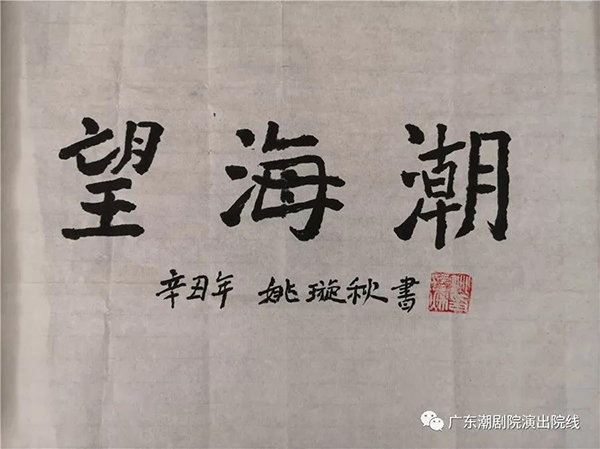 望海潮
辛丑年 姚璇秋書
广东潮剧院演出院线